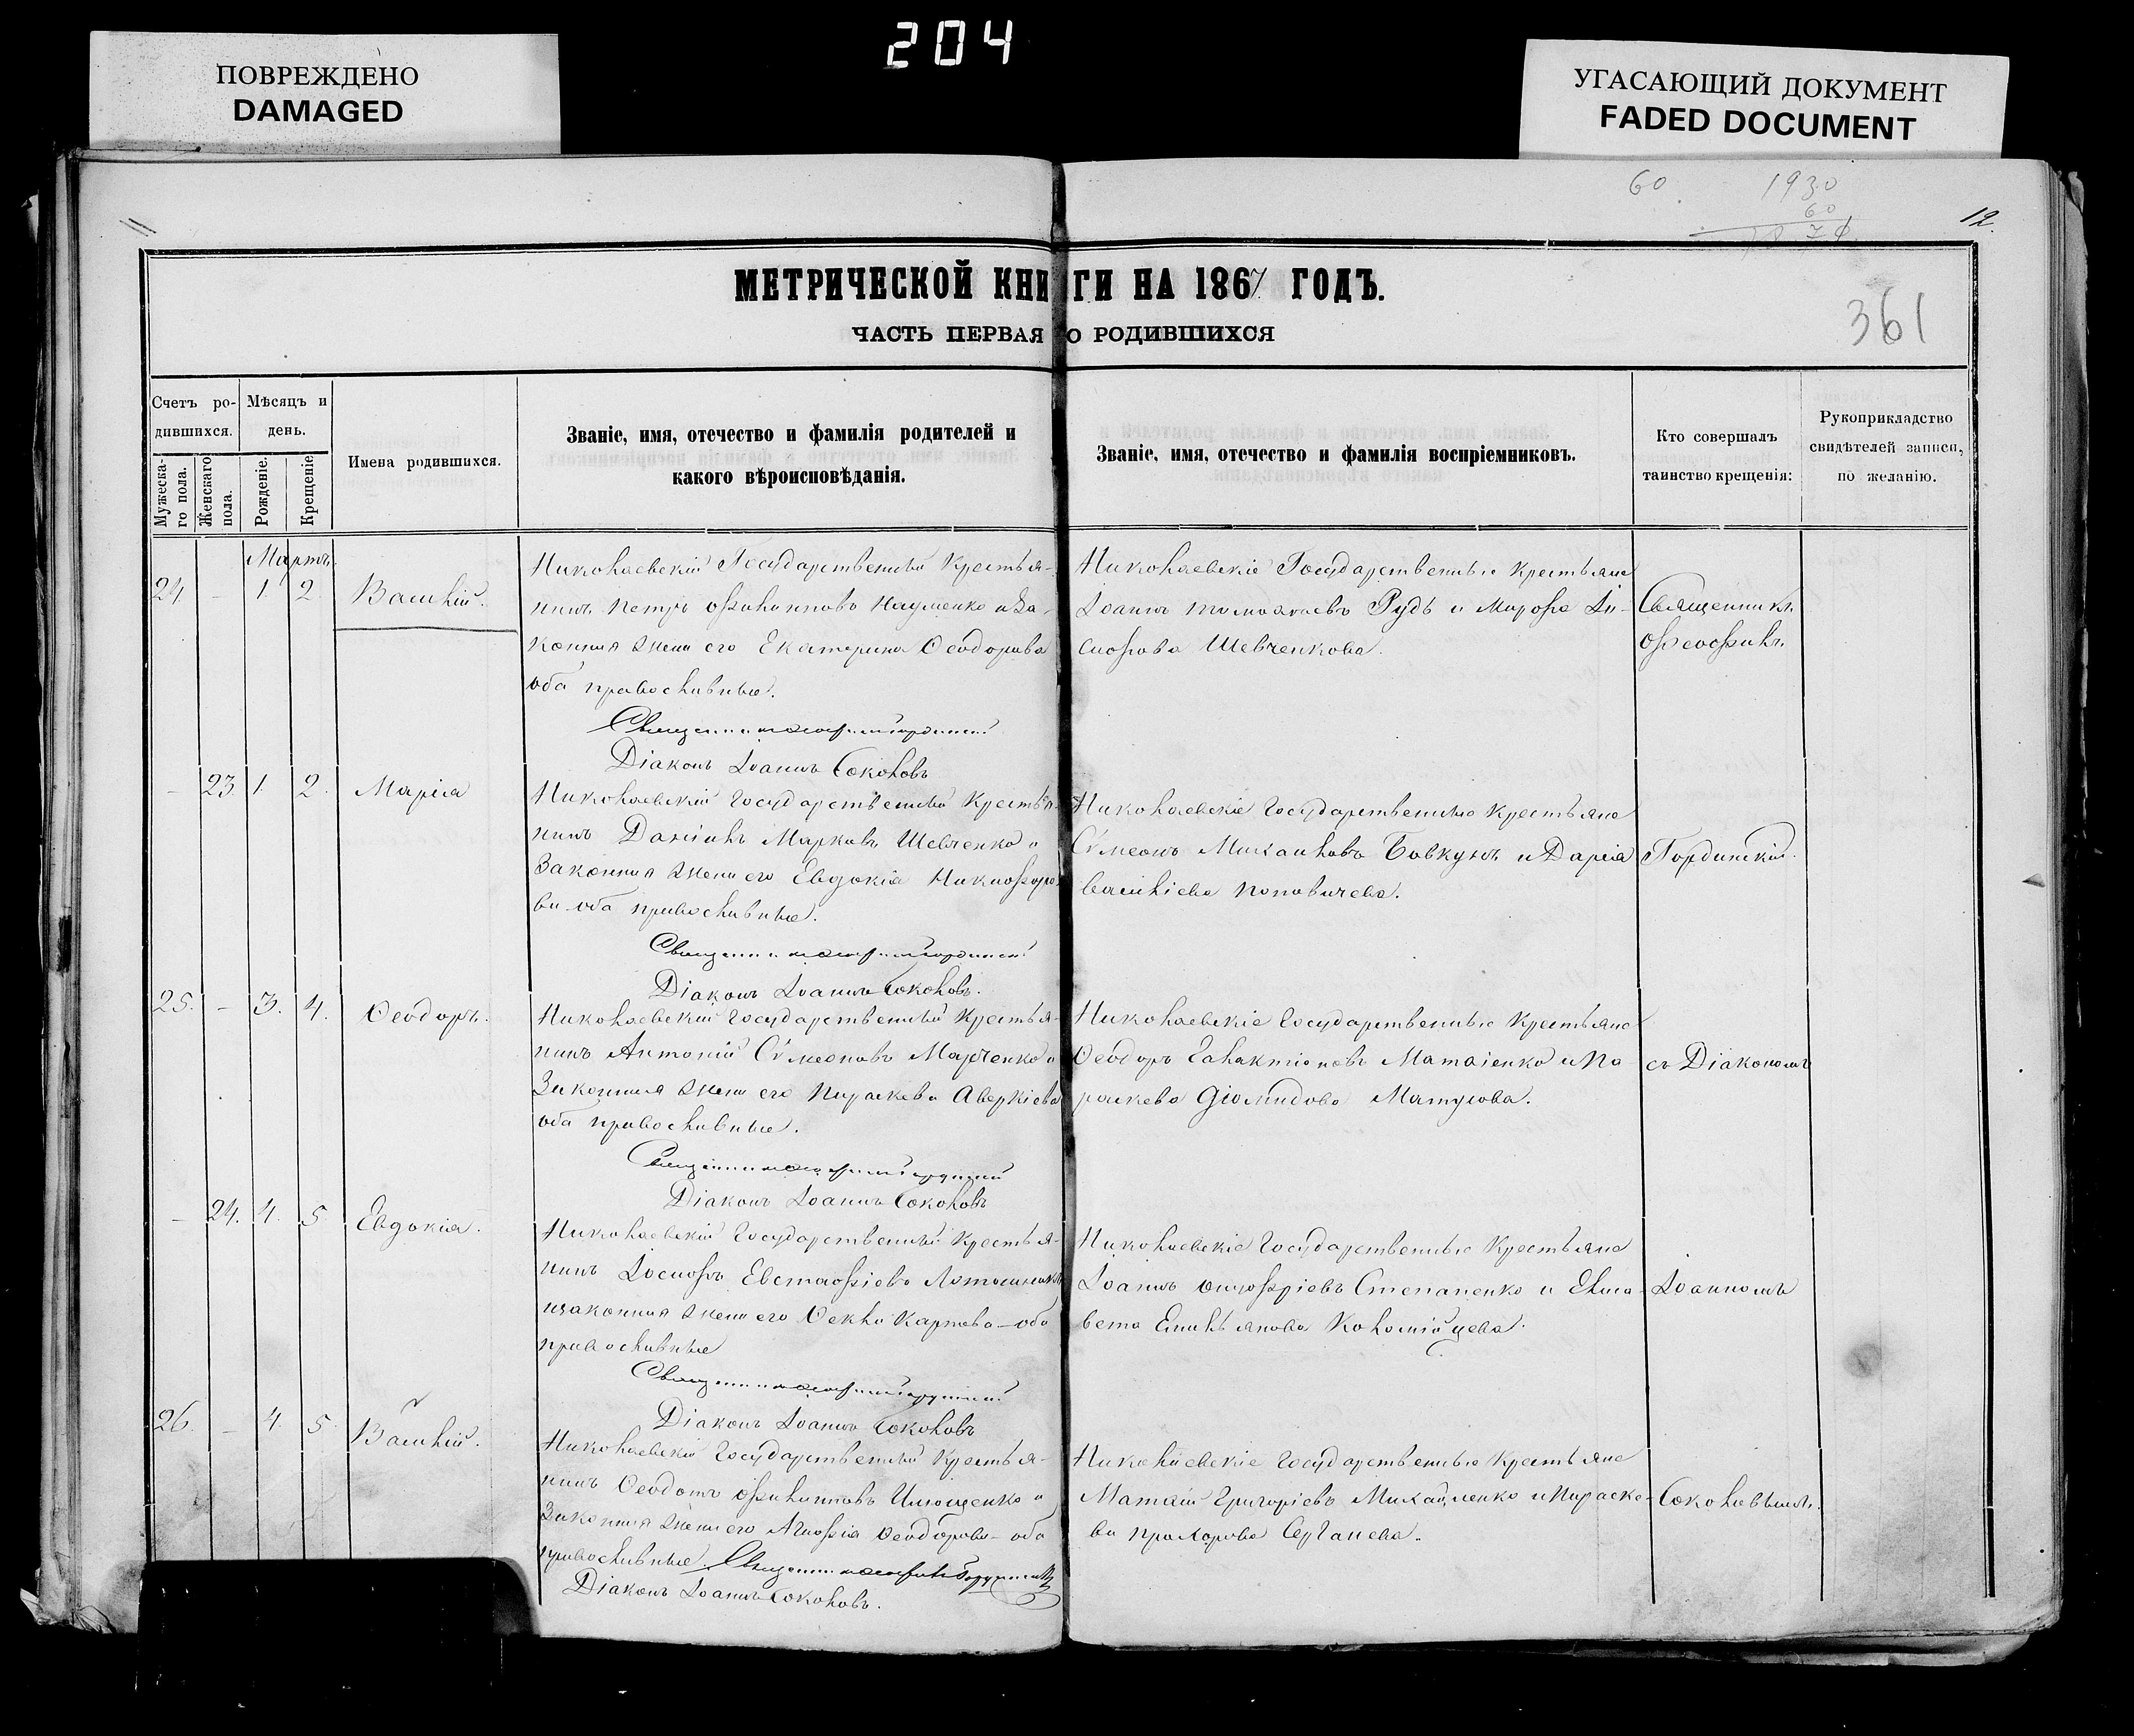 204
ПОВРЕЖДЕНО
DAMAGED
УГАСАЮЩИЙ ДОКУМЕНТ
FADED DOCUMENT
60
1930
60
11
12.
МЕТРИЧЕСКОЙ КНИГИ НА 1867 ГОДЪ.
ЧАСТЬ ПЕРВАЯ О РОДИВШИХСЯ
361
Счетъ ро-
дившихся.
Мужеска-
го пола.
Женскаго
пола.
Мѣсяцъ и
день.
Рожденіе.
Крещеніе
Имена родившихся.
Званіе, имя, отечество и фамилія родителей и
какого вѣроисповѣданія.
Званіе, имя, отечество и фамилія воспріемниковъ.
Кто совершалъ
таинство крещенія:
Рукоприкладство
свидѣтелей записи,
по желанію.
Мартъ.
24 – 1. 2. Василій.
Николаевскій Государственный Крестья-
нинъ Петръ Филипповъ Науменко и За-
конная жена его Екатерина Ѳеодорова
оба православные.
Священникъ Гординскій
Діаконъ Іоаннъ Соколовъ
Николаевскіе Государственные Крестьяне
Іоаннъ Тимоѳеевъ Рудь и Марфа Іо-
сифова Шевченкова.
Священникъ
Ѳеофилъ
– 23 1. 2. Марія
Николаевскій Государственный Крестья-
нинъ Даніилъ Марковъ Шевченко и
Законная жена его Евдокія Никифоро-
ва оба православные.
Священникъ Гординскій
Діаконъ Іоаннъ Соколовъ.
Николаевскіе Государственные Крестьяне
Сѵмеонъ Михаиловъ Бовкунъ и Дарія
Василіева Поповичева.
Гординскій.
25. – 3. 4. Ѳеодоръ.
Николаевскій Государственный Крестья-
нинъ Антоній Сѵмеоновъ Марченко и
Законная жена его Параскева Аверкіева
оба православные.
Священникъ Гординскій
Діаконъ Іоаннъ Соколовъ
Николаевскіе Государственные Крестьяне
Ѳеодоръ Галактіоновъ Матвіенко и Па
раскева Діомидова
съ Діакономъ
– 24. 4. 5. Евдокія.
Николаевскій Государственный Крестья-
нинъ Іосифъ Евстафіевъ
и законная жена его Ѳекла Карпова – оба
православные
Священникъ Гординскій
Діаконъ Іоаннъ Соколовъ
Николаевскіе Государственные Крестьяне
Іоаннъ Онуфріевъ Степаненко и Елиса-
вета Емиліанова Коломійцева.
Іоанномъ
26. – 4. 5. Василій.
Николаевскій Государственный Крестья-
нинъ Ѳеодотъ Филипповъ Ильющенко и
Законная жена его Агафія Ѳеодорова – оба
православные. Священникъ Гординскій
Діаконъ Іоаннъ Соколовъ.
Николаевскіе Государственные Крестьяне
Матѳій Григоріевъ Михайленко и Параске-
ва Прохорова
Соколовымъ.